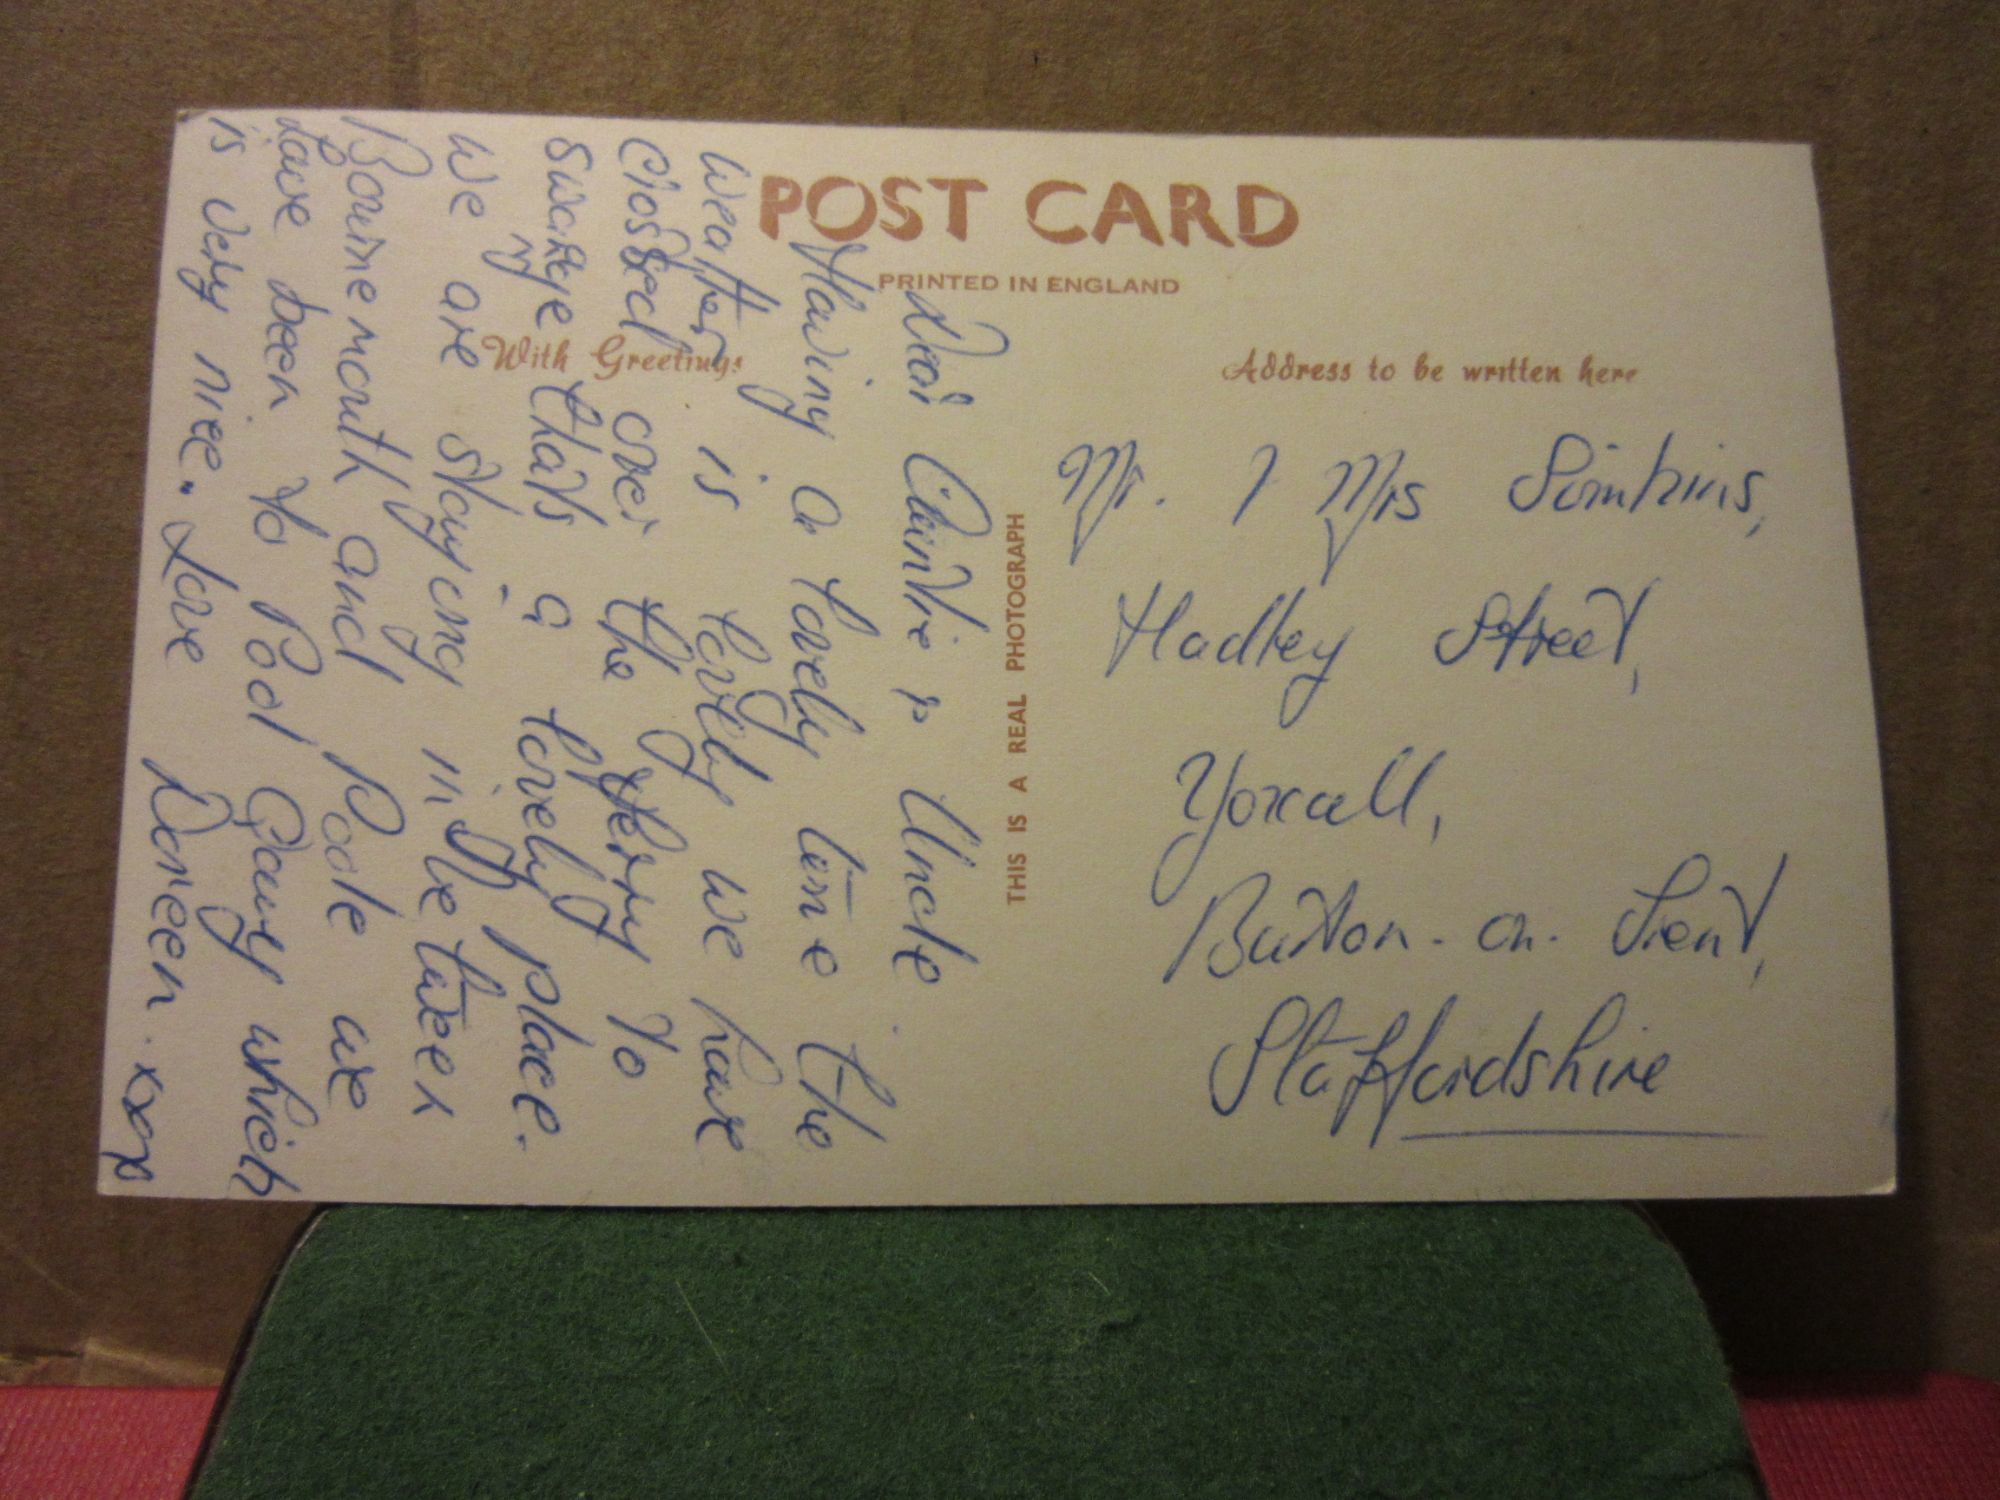 POST CARD
PRINTED IN ENGLAND
With Greetings
Address to be written here
THIS IS A REAL PHOTOGRAPH
Dear Auntie & Uncle
Having a lovely time the
weather is lovely we have
crossed over the ferry to
Swanage thats a lovely place.
we are staying in between
Bournemouth and Poole we
have been to Pool Quay which
is very nice. Love Doreen. xxx
Mr. & Mrs Simkins,
Hadley Street,
Yoxall,
Burton-on-Trent,
Staffordshire